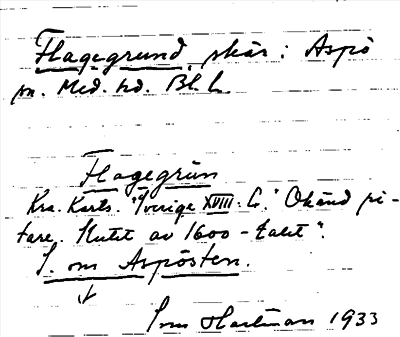 Flagegrund, skär i Aspö
sn. Med. hd. Bl. L.
Flagegrün
Kra. Karts. "Sverige XVIII. G." Okänd ri-
tare. Slutet av 1600-talet".
S. om Aspösten.
Hartman 1933